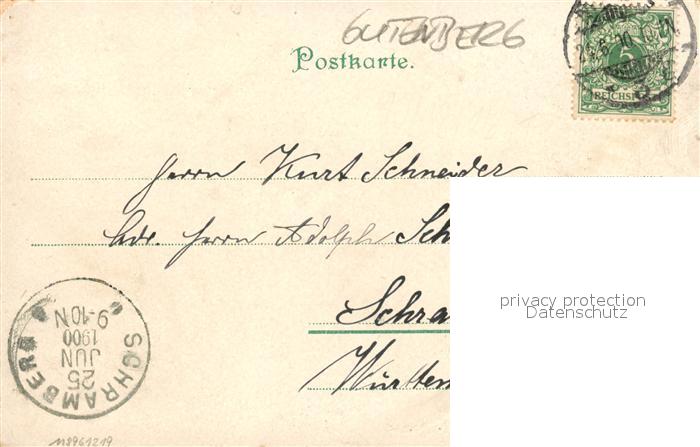 GUTENBERG
Postkarte.
5
REICHSP
Herrn Kurt Schneider
Adr. Herrn Adolph Sch
Schra
Württem
privacy protection
Datenschutz
SCHRAMBERG
25
JUN
1900
9-10N
118961219